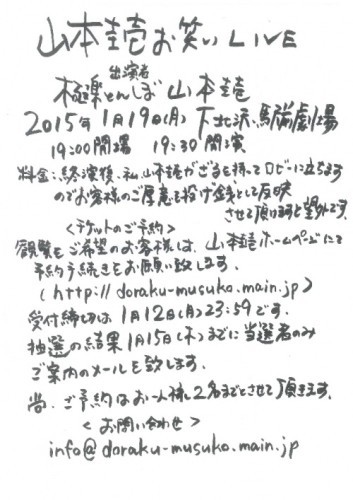 山本圭壱お笑いLIVE
出演者
極楽とんぼ 山本圭壱
2015年1月19日(月) 下北沢・駅前劇場
19:00開場 19:30開演
料金:終演後、私、山本圭壱がざるを持ってロビーに立ちます
のでお客様のご厚意を投げ銭として反映
させて頂けますと幸いです。
<チケットのご予約>
観覧をご希望のお客様は、山本圭壱ホームページにて
予約手続きをお願い致します。
(http://doraku-musuko.main.jp)
受付締切は1月12日(月)23:59です。
抽選の結果1月15日(木)までに当選者のみ
ご案内のメールを致します。
尚、ご予約はお一人様2名までとさせて頂きます。
<お問い合わせ>
info@doraku-musuko.main.jp